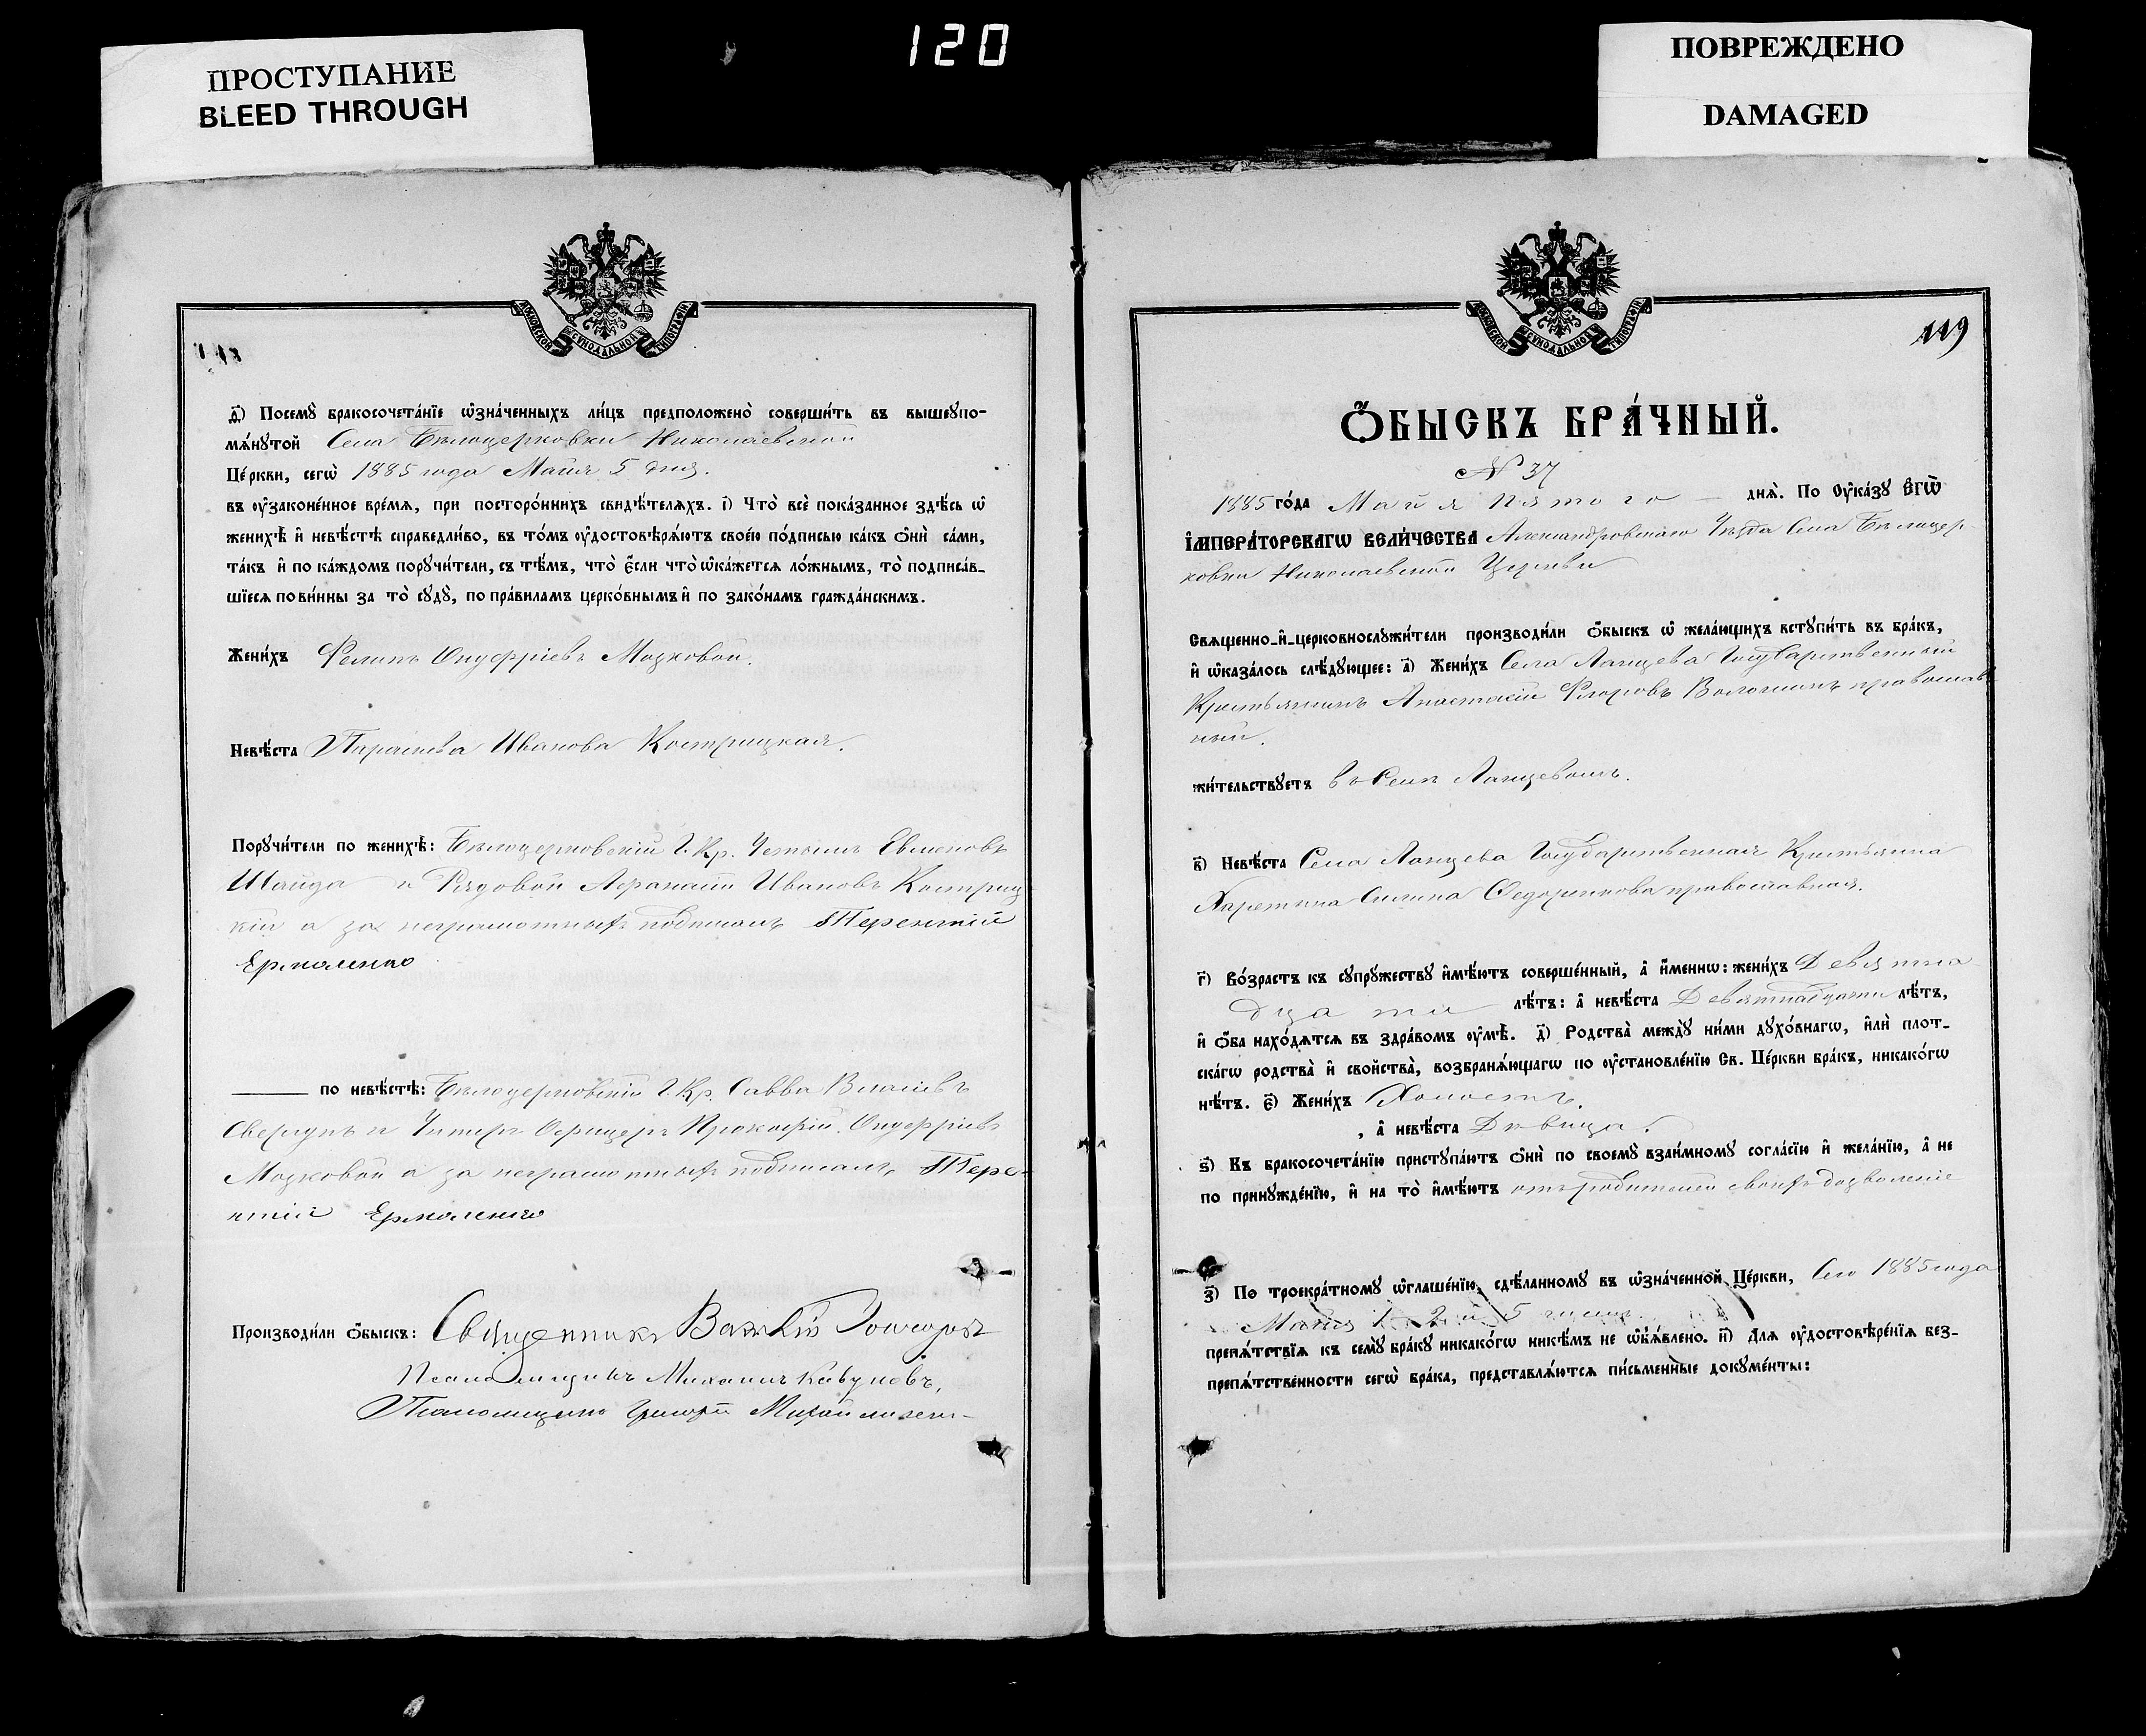 ПРОСТУПАНИЕ
BLEED THROUGH
120
ПОВРЕЖДЕНО
DAMAGED
МОСКОВСКОЙ СѴНОДАЛЬНОЙ ТИПОГРАФІИ
Ѳ҃) Посемꙋ̀ бракосочета́нїе ѡ҆зна́ченныхъ ли́цъ предположено̀ соверши́ть въ вышеꙋпо-
мѧ́нꙋтой Села Бѣлоцерковки Николаевской
Це́ркви, сегѡ̀ 1885 года Майя 5 дня.
въ ᲂу҆законе́нное вре́мѧ, при посторо́ннихъ свидѣ́телѧхъ. і҃) Что̀ всѐ пока́занное здѣ́сь ѡ҆
женихѣ̀ и҆ невѣ́стѣ справедли́во, въ то́мъ ᲂу҆достовѣрѧ́ютъ свое́ю по́дписью ка́къ ѻ҆нѝ са́ми,
та́къ и҆ по ка́ждомъ порꙋчи́тели, съ тѣ́мъ, что̀ є҆́сли что̀ ѡ҆ка́жетсѧ ло́жнымъ, то̀ подписа́в-
шїесѧ пови́нны за то̀ сꙋдꙋ̀, по пра́виламъ церко́внымъ и҆ по зако́намъ гражда́нскимъ.
Жени́хъ Филипъ Онуфріевъ Мозковой.
Невѣ́ста Параскева Иванова Кострицкая.
Порꙋчи́тели по женихѣ̀: Бѣлоцерковскій Г. Кр. Евменовъ
Шайда и Рядовой Афанасій Ивановъ Костриц-
кій а за неграмотныхъ подписалъ Терентій
Ермоленко
по невѣ́стѣ: Бѣлоцерковскій Г. Кр. Савва Власіевъ
и Унтеръ Офицеръ Прокофій Онуфріевъ
Мозковой а за неграмотныхъ подписалъ Тере-
нтій Ермоленко
Производи́ли ѻ҆́быскъ: Священникъ
Псаломщикъ Михаилъ
Псаломщикъ Григорій
119
Ѻ҆́БЫСКЪ БРА́ЧНЫЙ.
№ 37
1885 го́да Майя пятого днѧ̀. По Оу҆ка́зꙋ Є҆гѡ̀
І҆мпера́торскагѡ вели́чества Александровскаго Уѣзда Села Бѣлоцер-
ковки Николаевской Церкви
Свѧщенно-и҆-церковнослꙋжи́тели производи́ли ѻ҆́быскъ ѡ҆ жела́ющихъ встꙋпи́ть въ бра́къ,
и҆ ѡ҆каза́лось слѣ́дꙋющее: а҃) Жени́хъ Села Ланцева Государственный
Крестьянинъ Анастасій Флоровъ Волошинъ православ-
ный.
жи́тельствꙋетъ въ Селѣ Ланцевомъ.
в҃) Невѣ́ста Села Ланцева Государственная Крестьянка
Харетина Силина Федоренкова православная.
г҃) Во́зрастъ къ сꙋпрꙋ́жествꙋ и҆мѣ́ютъ соверше́нный, а҆ и҆́менно: жени́хъ Девятна-
дцати лѣ́тъ: а҆ невѣ́ста Девятнадцати лѣ́тъ,
и҆ ѻ҆́ба нахо́дѧтсѧ въ здра́вомъ ᲂу҆мѣ̀. д҃) Родства̀ междꙋ̀ ни́ми дꙋхо́внагѡ, и҆лѝ плот-
ска́гѡ родства̀ и҆ свойства̀, возбранѧ́ющагѡ по ᲂу҆становле́нїю Св. Це́ркви бра́къ, никако́гѡ
нѣ́тъ. є҃) Жени́хъ Холостъ,
, а҆ невѣ́ста Дѣвица.
ѕ҃) Къ бракосочета́нїю пристꙋпа́ютъ ѻ҆нѝ по своемꙋ̀ взаи́мномꙋ согла́сїю и҆ жела́нїю, а҆ не
по принꙋжде́нїю, и҆ на то̀ и҆мѣ́ютъ отъ родителей своихъ дозволеніе
з҃) По троекра́тномꙋ ѡ҆глаше́нїю, сдѣ́ланномꙋ въ ѡ҆зна́ченной Це́ркви, Сего 1885 года
Майя 1, 2 и 5 чиселъ
препѧ́тствїѧ къ семꙋ̀ бра́кꙋ никако́гѡ никѣ́мъ не ѡ҆б̾ѧ́влено. и҃) Длѧ ᲂу҆достовѣре́нїѧ без-
препѧ́тственности сегѡ̀ бра́ка, представлѧ́ютсѧ пи́сьменные докꙋме́нты: